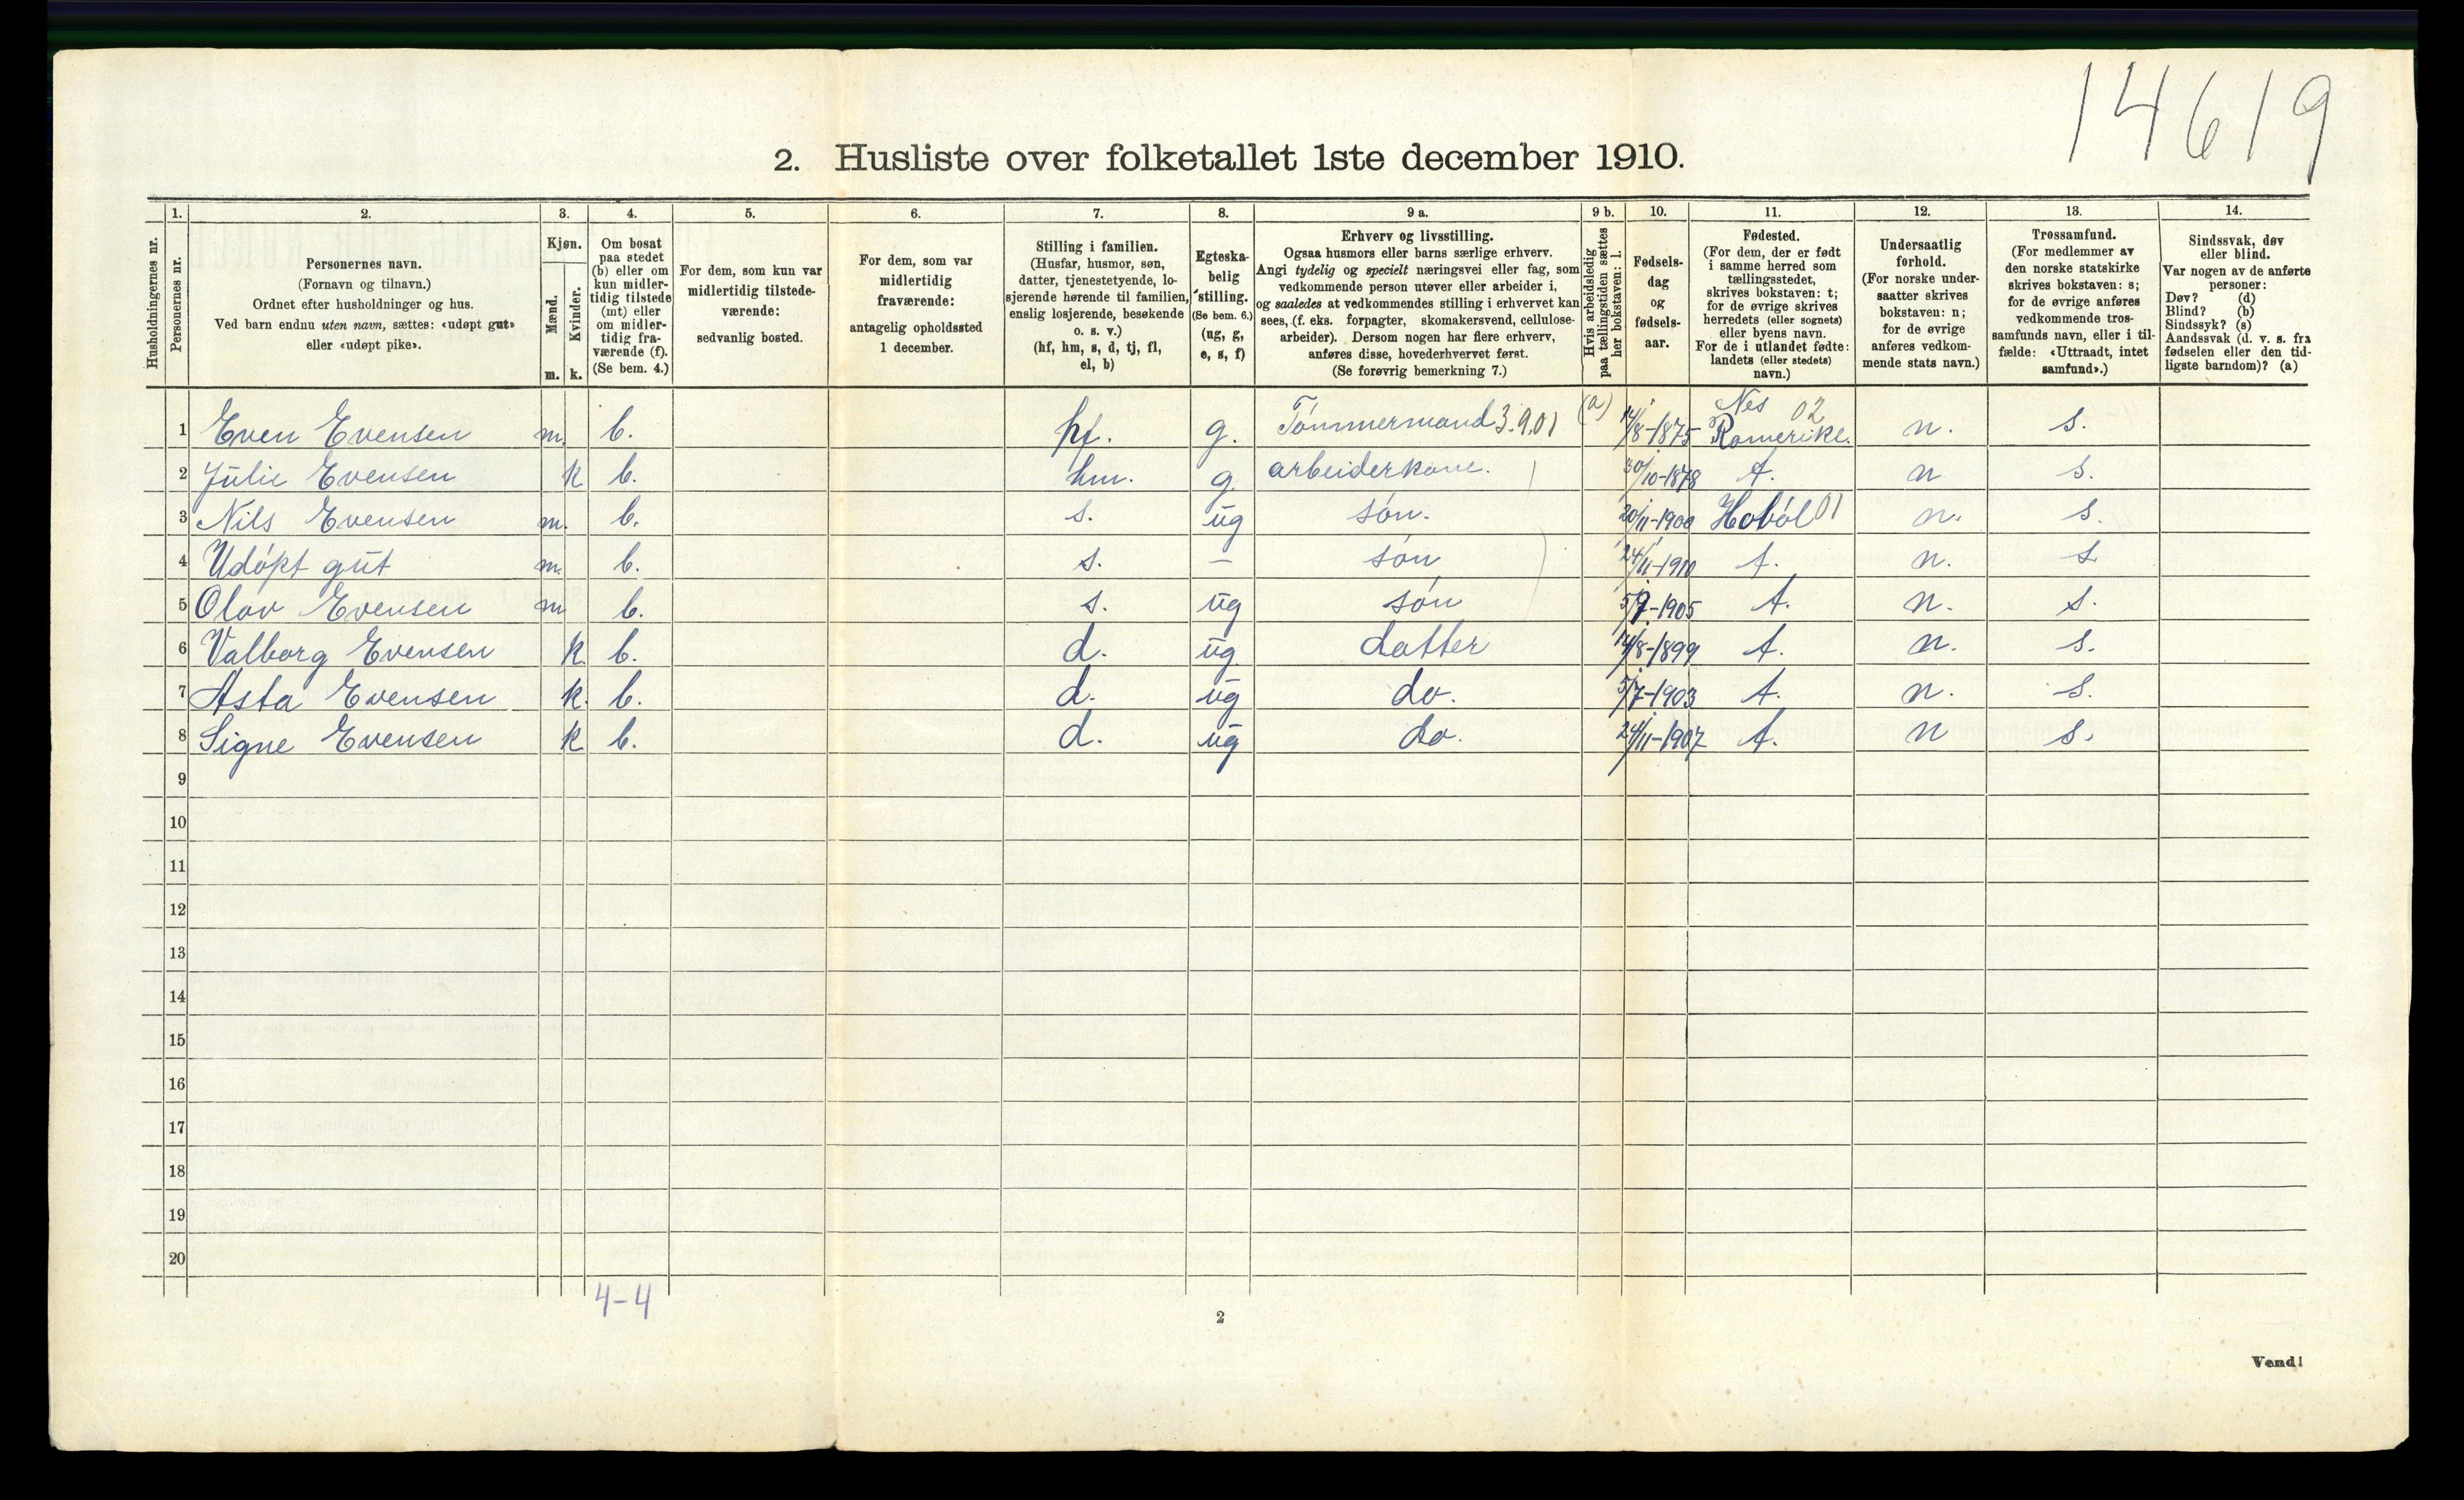 14619
2. Husliste over folketallet 1ste december 1910.
Husholdningernes nr.
1.
Personernes nr.
2.
Personernes navn.
(Fornavn og tilnavn.)
Ordnet efter husholdninger og hus.
Ved barn endnu uten navn, sættes: «udøpt gut»
eller «udøpt pike».
3.
Kjøn.
Mænd.
Kvinder.
m. k.
4.
Om bosat
paa stedet
(b) eller om
kun midler-
tidig tilstede
(mt) eller
om midler-
tidig fra-
værende (f).
(Se bem. 4.)
5.
For dem, som kun var
midlertidig tilstede-
værende:
sedvanlig bosted.
6.
For dem, som var
midlertidig
fraværende:
antagelig opholdssted
1 december.
7.
Stilling i familien.
(Husfar, husmor, søn,
datter, tjenestetyende, lo-
sjerende hørende til familien,
enslig losjerende, besøkende
o. s. v.)
(hf, hm, s, d, tj, fl,
el, b)
8.
Egteska-
belig
stilling.
(Se bem. 6.)
(ug, g,
e, s, f)
9 a.
Erhverv og livsstilling.
Ogsaa husmors eller barns særlige erhverv.
Angi tydelig og specielt næringsvei eller fag, som
vedkommende person utøver eller arbeider i,
og saaledes at vedkommendes stilling i erhvervet kan
sees, (f. eks. forpagter, skomakersvend, cellulose-
arbeider). Dersom nogen har flere erhverv,
anføres disse, hovederhvervet først.
(Se forøvrig bemerkning 7.)
9 b.
Hvis arbeidsledig
paa tællingstiden sættes
her bokstaven: l.
10.
Fødsels-
dag
og
fødsels-
aar.
11.
Fødested.
(For dem, der er født
i samme herred som
tællingsstedet,
skrives bokstaven: t;
for de øvrige skrives
herredets (eller sognets)
eller byens navn.
For de i utlandet fødte:
landets (eller stedets)
navn.)
12.
Undersaatlig
forhold.
(For norske under-
saatter skrives
bokstaven: n;
for de øvrige
anføres vedkom-
mende stats navn.)
13.
Trossamfund.
(For medlemmer av
den norske statskirke
skrives bokstaven: s;
for de øvrige anføres
vedkommende tros-
samfunds navn, eller i til-
fælde: «Uttraadt, intet
samfund».)
14.
Sindssvak, døv
eller blind.
Var nogen av de anførte
personer:
Døv? (d)
Blind? (b)
Sindssyk? (s)
Aandssvak (d. v. s. fra
fødselen eller den tid-
ligste barndom)? (a)
1 Even Evensen m. b. hf. g. Tømmermand 3.9.01 (a) 14/8-1875 Nes 02 Romerike. n. s.
2 Julie Evensen k b. hm. g. arbeiderkone. 30/10-1878 t. n s.
3 Nils Evensen m. b. s. ug søn. 20/11-1900 Hobøl 01 n. s.
4 Udøpt gut m. b. s. – søn 24/11-1910 t. n. s.
5 Olav Evensen m b. s. ug søn 5/9-1905 t. n. s.
6 Valborg Evensen k. b. d. ug. datter 14/8-1899 t. n. s.
7 Asta Evensen k. b. d. ug do. 5/7-1903 t. n. s.
8 Signe Evensen k b. d. ug do. 24/11-1907 t. n s.
9
10
11
12
13
14
15
16
17
18
19
20
4-4
2
Vend!